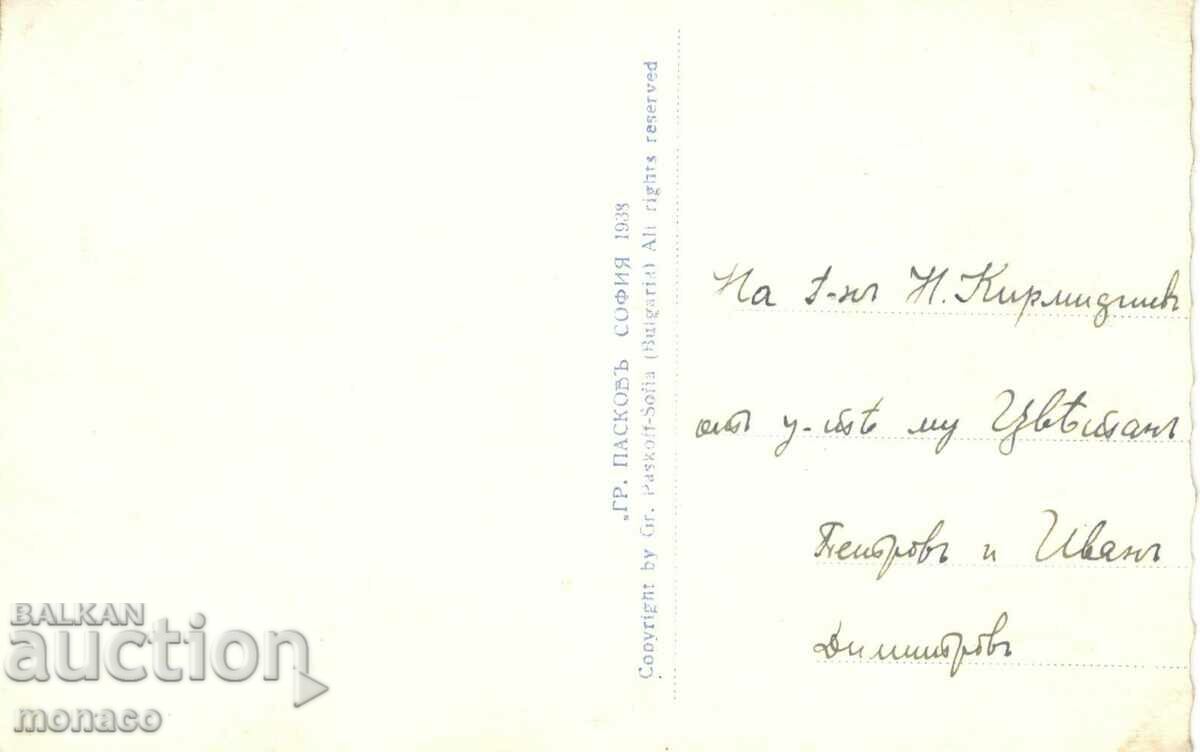 „ГР. ПАСКОВЪ СОФИЯ 1938
Copyright by Gr. Paskoff-Sofia (Bulgaria) All rights reserved
На г-нъ Н. Кирмидчиевъ
отъ у-тѣ му Цвѣтанъ
Петровъ и Иванъ
Димитровъ
BALKAN
auction
monaco